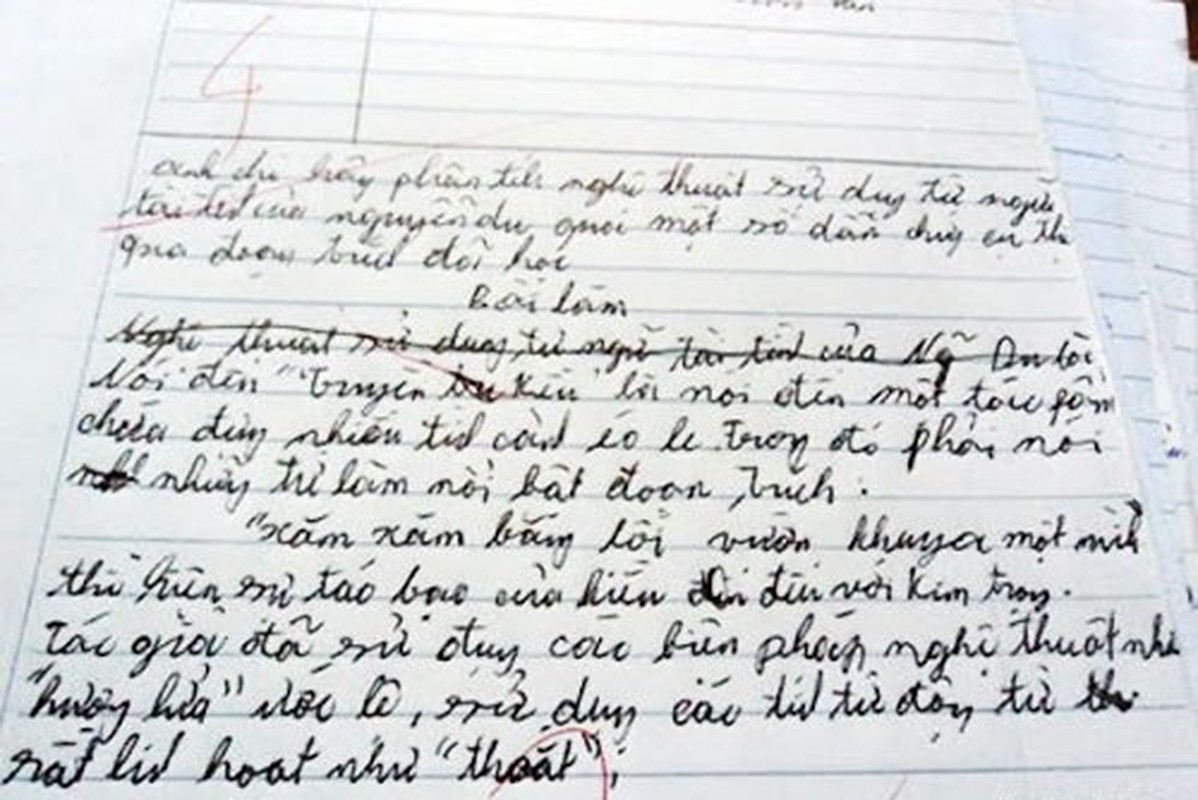 4
anh chị hãy phân tích nghệ thuật sử dụng từ ngữ
tài tình của nguyễn du qua một số dẫn chứng cụ thể
qua đoạn trích đã học
Bài làm
Nghệ thuật sử dụng từ ngữ tài tình của Ng Du tôi
Nói đến "truyện Kiều" là nói đến một tác phẩm
chứa đựng nhiều tình cảnh éo le trong đó phải nói
những từ làm nổi bật đoạn trích :
"xăm xăm băng lối vườn khuya một mình
thể hiện sự táo bạo của kiều đến với Kim trọng.
tác giả đã sử dụng các biện pháp nghệ thuật như
"hương lửa" ước lệ, sử dụng các tính từ động từ
rất linh hoạt như "thoắt",